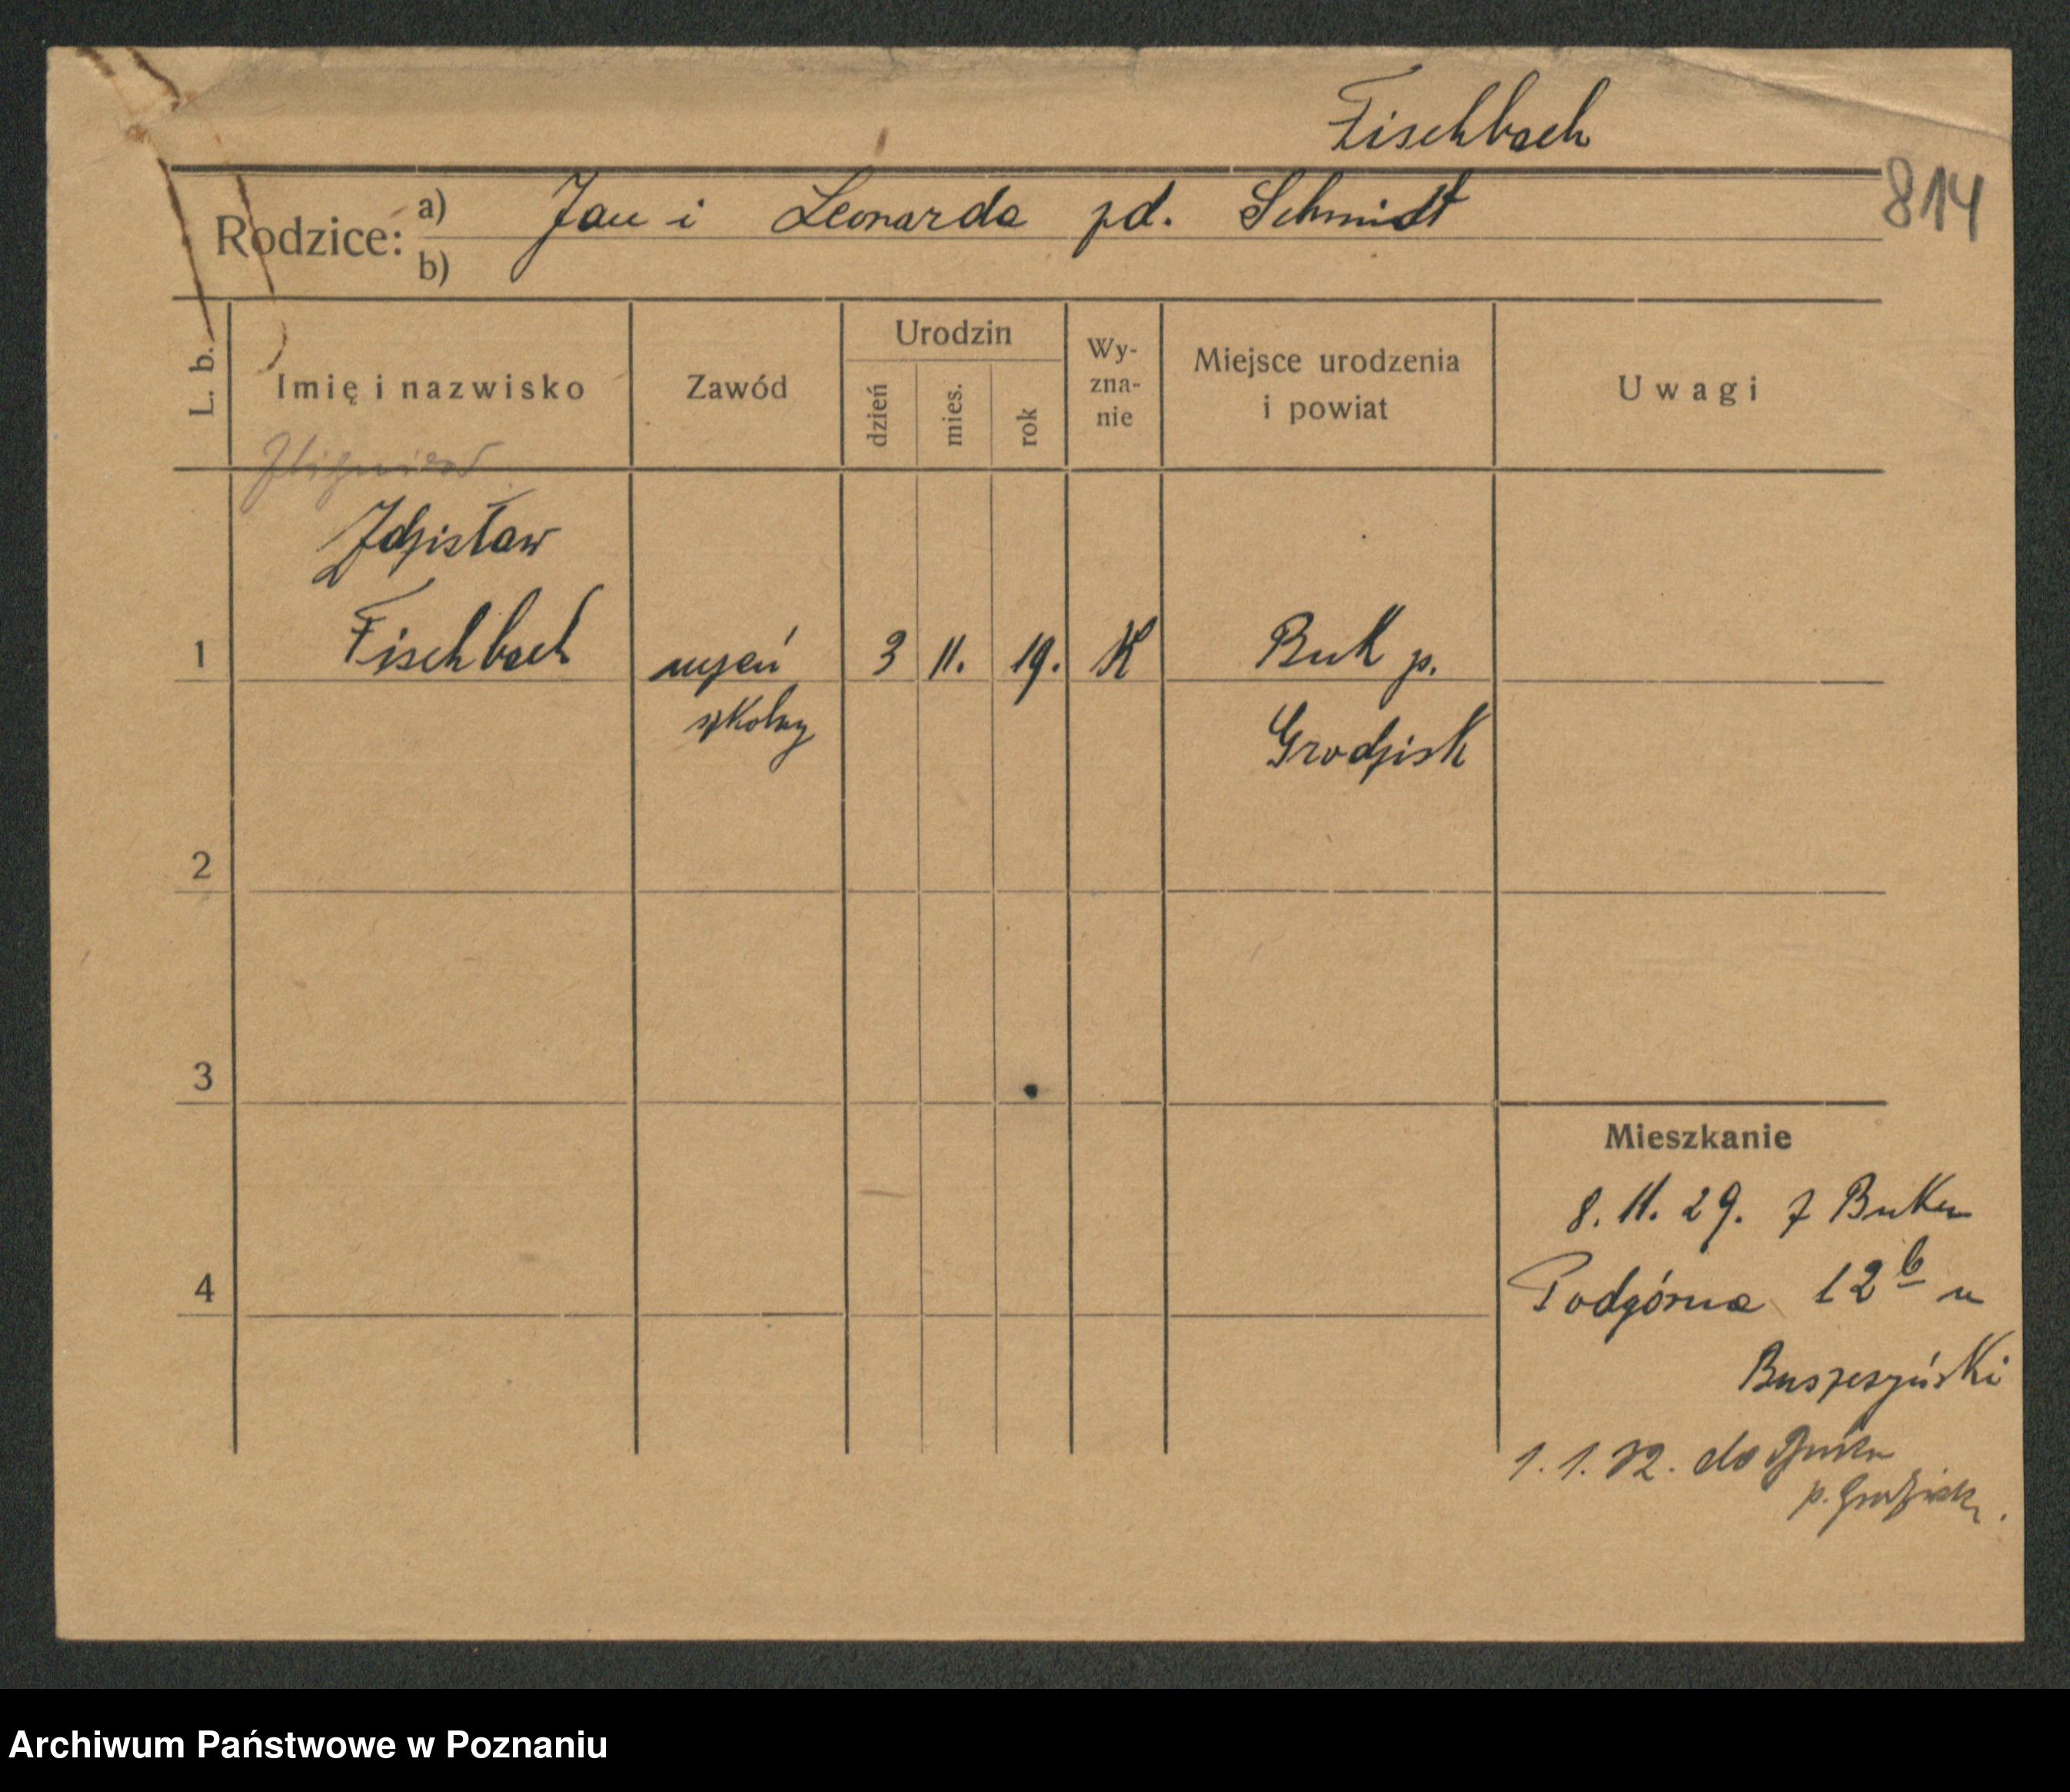 Fischbach
814
Rodzice: a) Jan i Leonarda zd. Schmidt
b)
L. b.
Imię i nazwisko
Zawód
Urodzin
dzień
mies.
rok
Wy-
zna-
nie
Miejsce urodzenia
i powiat
Uwagi
Zbigniew
Zdzisław
1 Fischbach uczeń 3 11. 19. K Buk p.
szkolny Grodzisk
2
3
Mieszkanie
8. 11. 29. z Buku
4 Podgórna 12 b u
1. 1. 32. do Buku
p. Grodzisk.
Archiwum Państwowe w Poznaniu